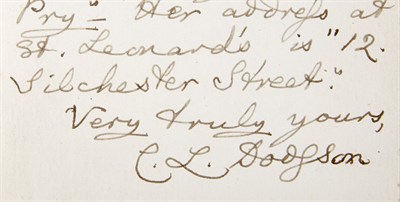 Pry". Her address at
St. Leonard's is "12.
Silchester Street".
Very truly yours,
C. L. Dodgson